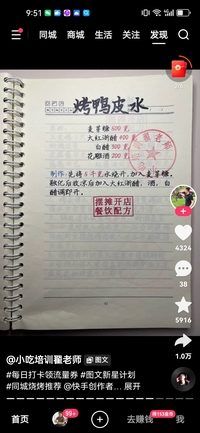 9:51
同城
商城
生活
关注
发现
烤鸭皮水
麦芽糖 500克
大红浙醋 400克
白醋 500克
花雕酒 200克
制作:先将5千克水烧开,加入麦芽糖,
融化后放凉后加入大红浙醋,酒,白
醋调即用。
摆摊开店
餐饮配方
4324
38
5916
1.0万
@小吃培训翟老师 图文
#每日打卡领流量券 #图文新星计划
#同城烧烤推荐 @快手创作者... 展开
首页
99+
去赚钱
我